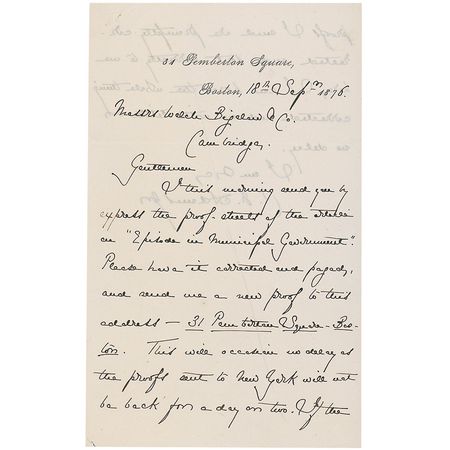 31 Pemberton Square,
Boston, 18th Sepr 1876.
Messrs Welch Bigelow & Co.
Cambridge,
Gentlemen
I this morning send you by
express the proof-sheets of the article
on "Episode in Municipal Government".
Please have it corrected and paged,
and send me a new proof to this
address — 31 Pemberton Square - Bos-
ton. This will occasion no delay as
the proofs sent to New York will not
be back for a day or two. If the